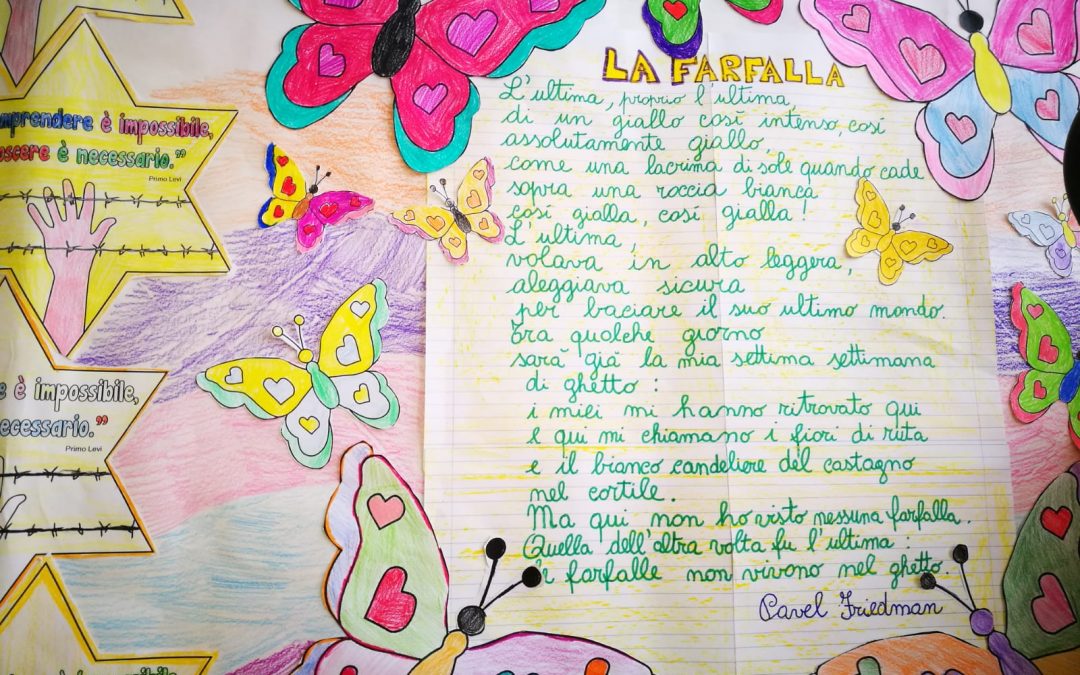 LA FARFALLA
L'ultima, proprio l'ultima,
di un giallo così intenso, così
assolutamente giallo,
come una lacrima di sole quando cade
sopra una roccia bianca
così gialla, così gialla!
L'ultima,
volava in alto leggera,
aleggiava sicura
per baciare il suo ultimo mondo.
Fra qualche giorno
sarà già la mia settima settimana
di ghetto:
i miei mi hanno ritrovato qui
e qui mi chiamano i fiori di ruta
e il bianco candeliere del castagno
nel cortile.
Ma qui non ho visto nessuna farfalla.
Quella dell'altra volta fu l'ultima:
farfalle non vivono nel ghetto.
Pavel Friedman
mprendere è impossibile,
oscere è necessario.”
Primo Levi
e è impossibile,
ecessario.”
Primo Levi